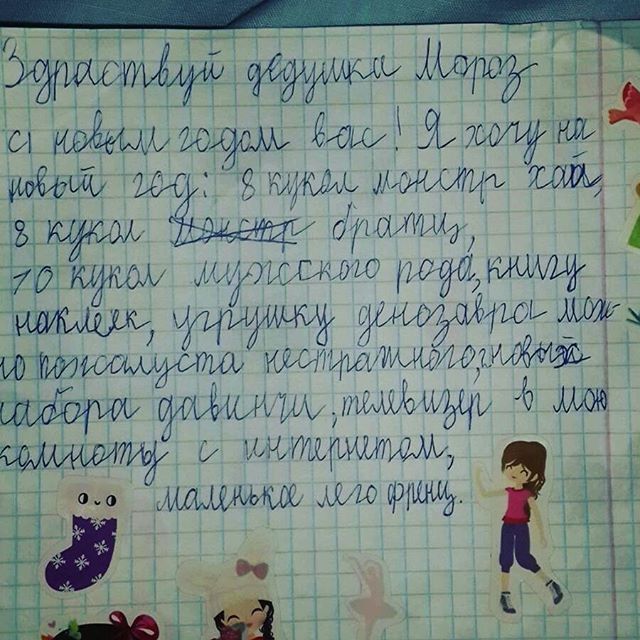 Здраствуй дедушка Мороз
с новым годом вас! Я хочу на
новый год: 8 кукол монстр хай,
8 кукол монстр братц,
10 кукол мужского рода, книгу
наклеяк, угрушку денозавра мож-
но пожалуста нестрашного,
набора давинчи, телевизер в мою
комноты с интернетом,
маленькое лего френц.